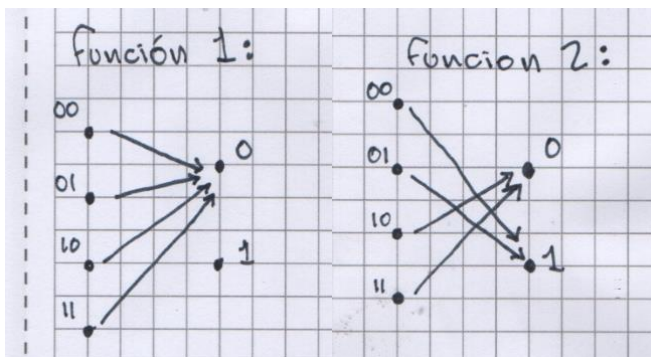 Función 1:
00
01
10
11
0
1
Funcion 2:
00
01
10
11
0
1